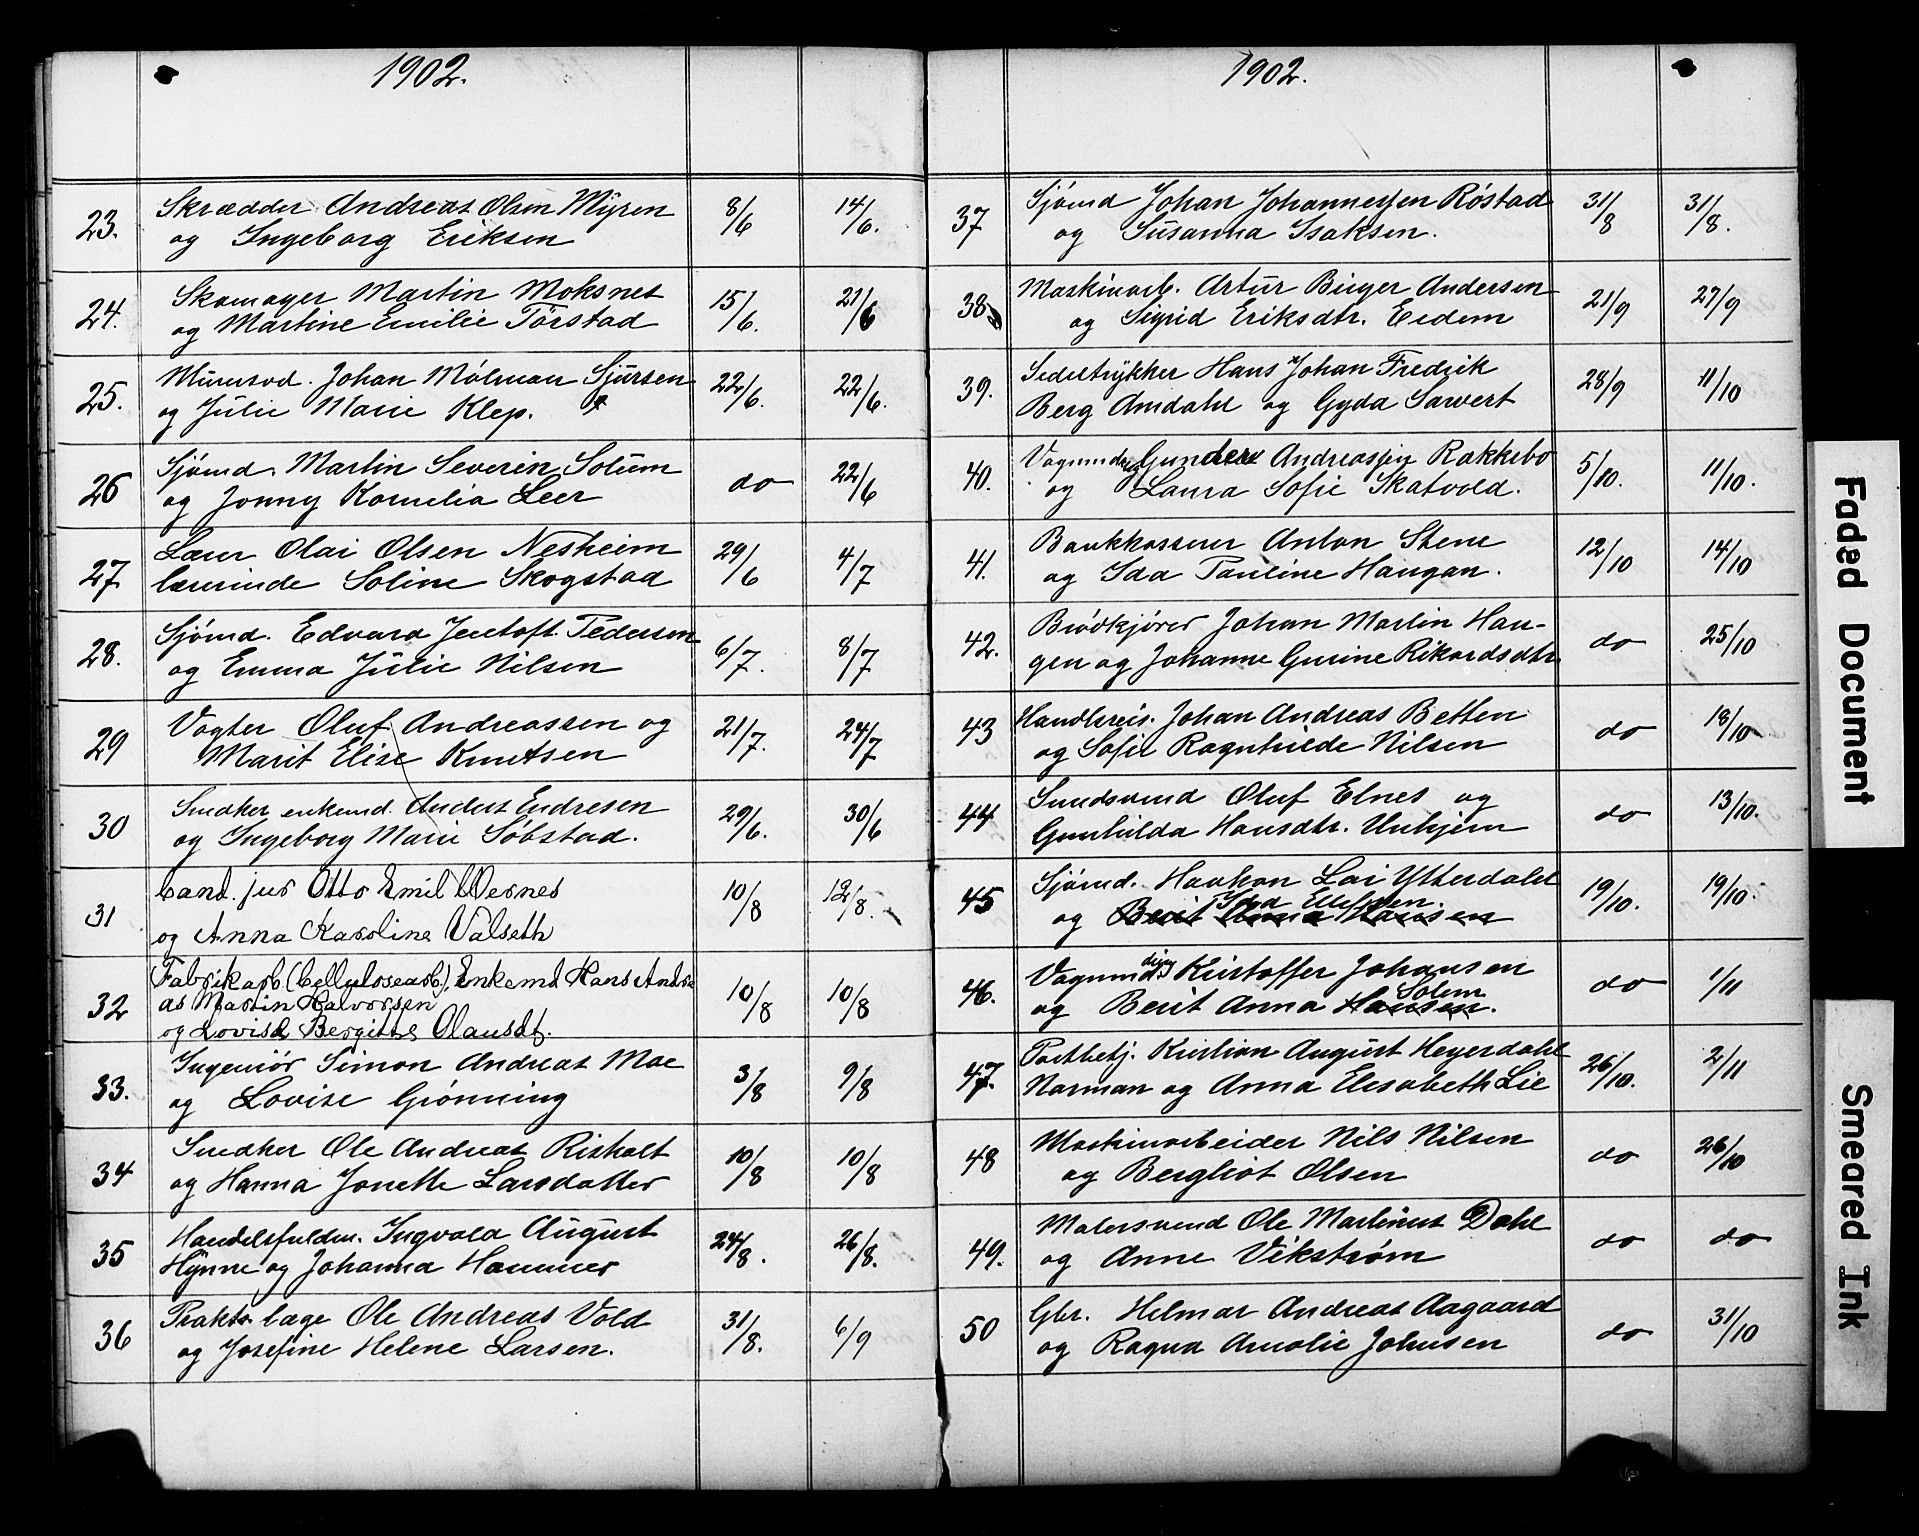 1902.
23. Skrædder Andreas Olsen Myren 8/6 14/6.
og Ingeborg Eriksen
24. Skomager Martin Moksnes 15/6. 21/6
og Martine Emilie Törstad
25. Murersvd. Johan Mólmar Sjursen 22/6. 22/6.
og Julie Marie Klep.
26 Sjómd. Martin Severin Solum do 22/6
og Jonny Kornelia Leer
27 Lærer Olai Olsen Nesheim 29/6 4/7
lærerinde Soline Skogstad
28. Sjómd. Edvard Jentoft Pedersen 6/7. 8/7
og Emma Julie Nilsen
29 Vogter Oluf Andreassen og 21/7. 24/7
Marit Elise Knutsen
30 Snedker enkemd. Anders Endresen 29/6. 30/6
og Ingeborg Marie Sóbstad.
31 Cand. jur Otto Emil Wernes 10/8 12/8.
og Anna Karoline Valseth
32 Fabrikarb (Cellulosearb.) Enkemd Hans Andre
as Martin Halvorsen 10/8 10/8
og Lovise Bergitte Olausdt.
33. Ingeniör Simon Andreas Moe 3/8 9/8
og Lovise Grönning
34 Snedker Ole Andreas Risholt 10/8 10/8
og Hanna Jonette Larsdatter
35 Handelsfuldm. Ingvald August 24/8. 26/8.
Hynne og Johanna Hammer
36 Prakts. læge Ole Andreas Vold 31/8. 6/9
og Josefine Helene Larsen.
1902.
37 Sjómd Johan Johannessen Róstad 31/8 31/8.
og Susanna Isaksen.
38 Maskinarb. Artur Birger Andersen 21/9 27/9
og Sigrid Eriksdtr. Eidem
39. Hans Johan Fredrik 28/9 11/10
Berg Amdahl og Gyda Sawert
40. Vognmd Gunder Andreas Rokkebo 5/10. 11/10.
og Laura Sofie Skatvold.
41. Bankkasserer Anton Stene 12/10 14/10
og Ida Pauline Haugan.
42. Brödkjörer Johan Martin Hau-
gen og Johanne Gurine Rikardsdtr. do 25/10
43 Handlsreis. Johan Andreas Betten do 18/10
og Sofie Ragnhilde Nilsen
44 Smedsvend Oluf Elnes og do 13/10.
Gunhilda Hansdtr. Unhjem
45 Sjómd. Haakon Lai Ytterdahl 19/10. 19/10.
Ida Ellefsen.
og Berit Anna Hansen
46. Vognmd. dreng Kristoffer Johansen do 1/11
Solem
og Berit Anna Hansen.
47. Postbetj. Kristian August Heyerdahl 26/10. 2/11
Norman og Anna Elisabeth Lie
48 Maskinarbeider Nils Nilsen do 26/10
og Bergliot Olsen
49. Malersvend Ole Martinus Dahl do do
og Anne Vikström
50 Gbr. Helmar Andreas Aagaard do 31/10
og Ragna Amalie Johnsen
Faded Document
Smeared Ink